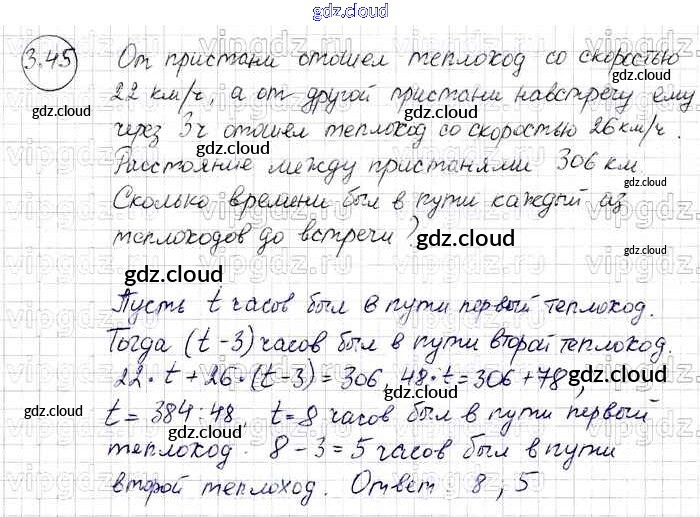 gdz.cloud
3.45 От пристани отошел теплоход со скоростью
22 км/ч, а от другой пристани навстречу ему
через 3ч отошел теплоход со скоростью 26 км/ч.
Расстояние между пристанями 306 км.
Сколько времени был в пути каждый из
теплоходов до встречи?
Пусть t часов был в пути первый теплоход.
Тогда (t-3) часов был в пути второй теплоход.
22·t + 26·(t-3) = 306, 48·t = 306 + 78,
t = 384 : 48, t = 8 часов был в пути первый
теплоход. 8 - 3 = 5 часов был в пути
второй теплоход. Ответ: 8; 5